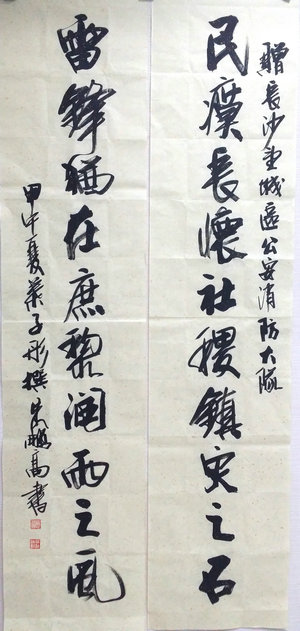 贈長沙望城區公安消防大隊
民瘼長懷社稷鎮灾之石
雷鋒猶在庶黎潤雨之風
甲午夏葉子彤撰朱鵬高書